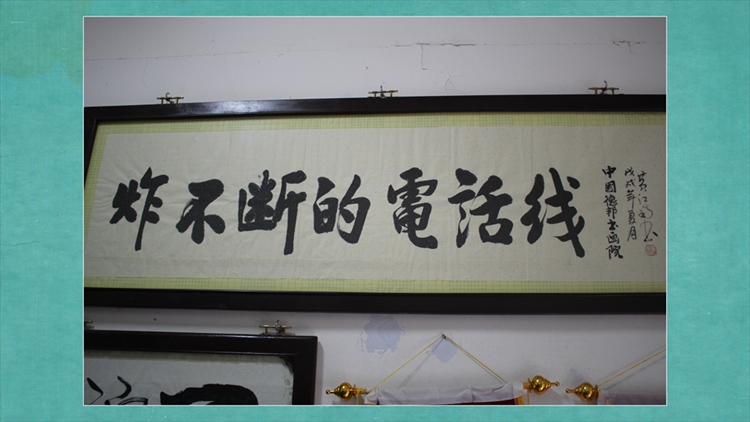 炸不断的電话线
戊戌年夏月
中國德邦书画院